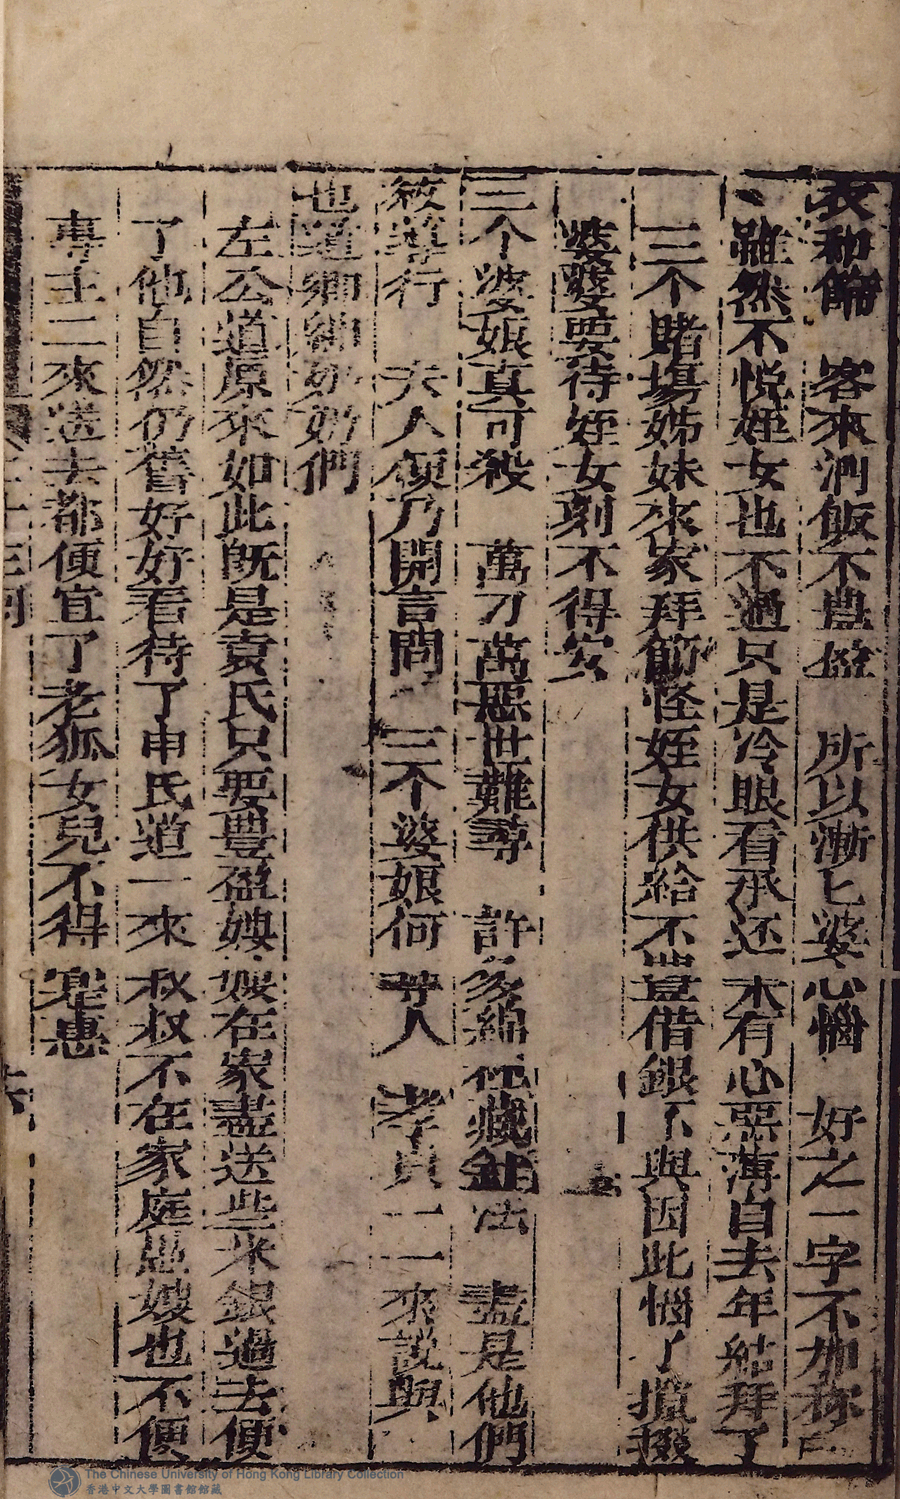 衣和飾　客來酒飯不豊盈　所以漸匕婆心惱　好之一字不加称
雖然不悅姪女也不過只是冷眼看承还未有心惡薄自去年結拜了
三个賭場姊妹來家拜節怪姪女供給不豊借銀不與因此惱了攛掇
婆婆要待姪女刻不得安
三个婆娘真可殺　萬刀萬惡世難尋　許多綿 藏 法　盡是他們
敎 行　夫人便乃開言問　三个婆娘何 人　孝貞一一來說與
也道鄉紳奶奶們
左公道原來如此既是袁氏只要豊盈嫂嫂在家盡送些米銀過去便
了他自然仍舊好好看待了申氏道一來叔叔不在家庭愚嫂也不便
專主二來送去都便宜了老狐女兒不得 惠
The Chinese University of Hong Kong Library Collection
香港中文大學圖書館館藏